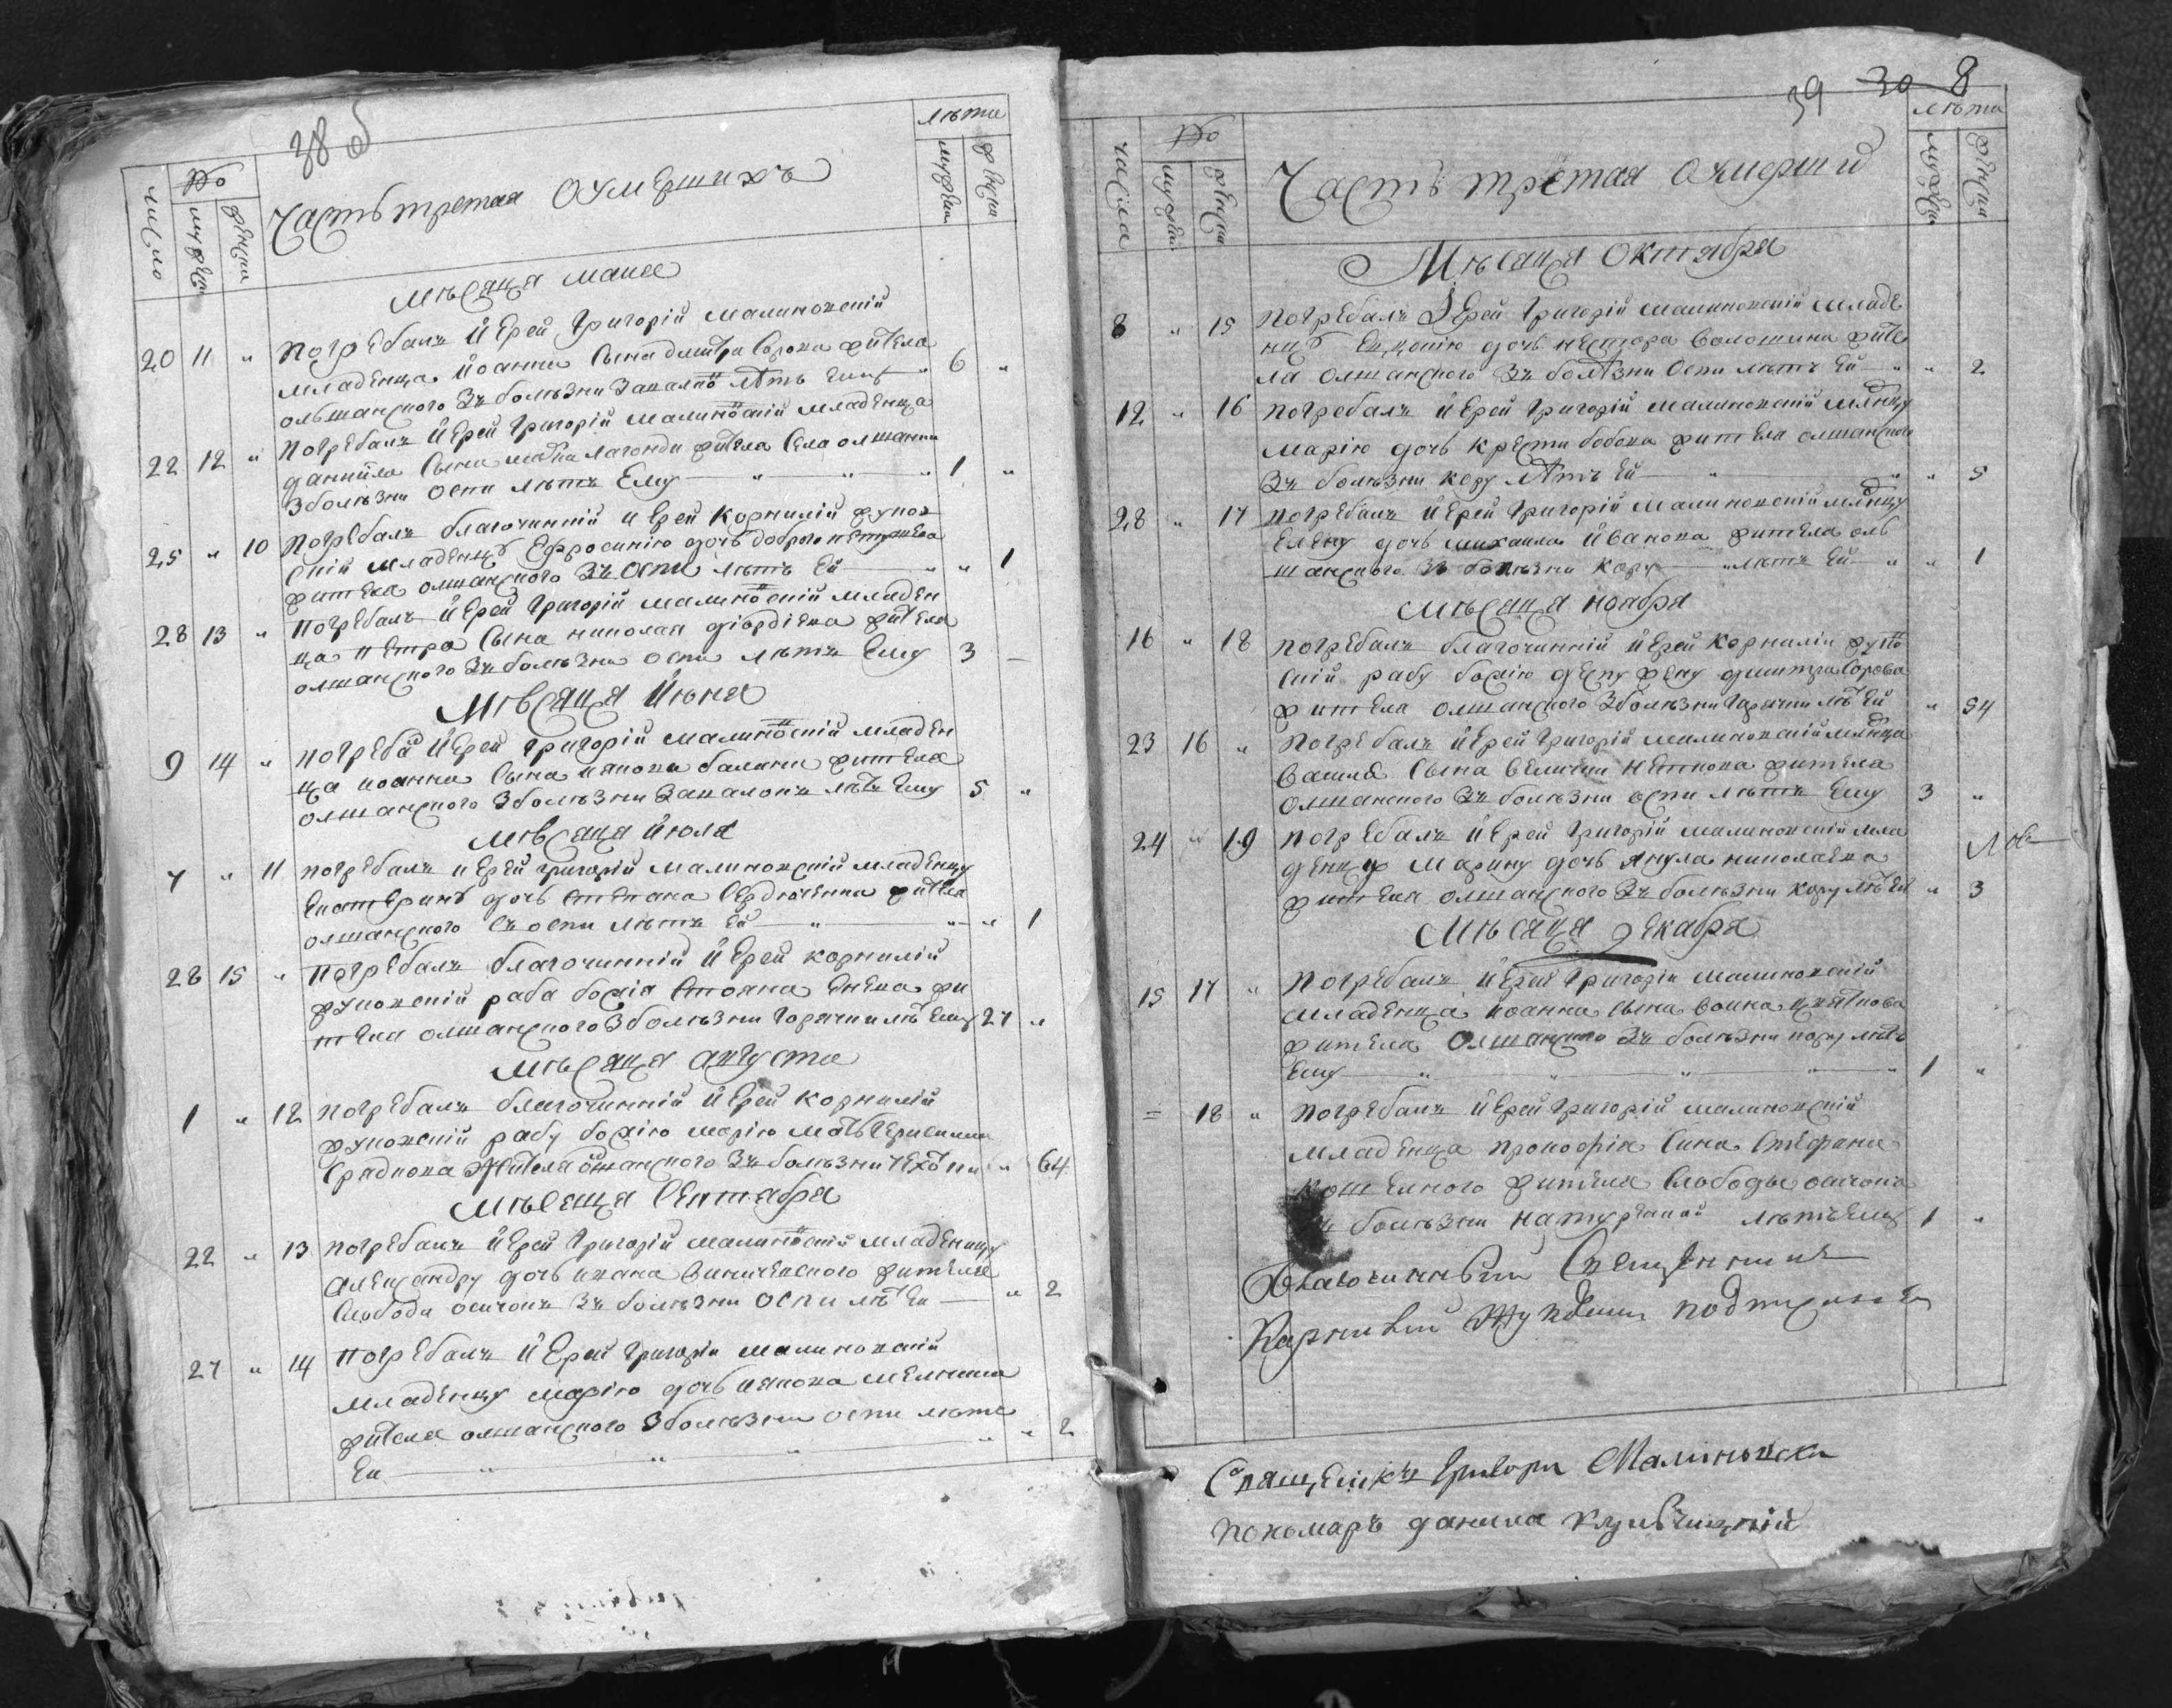 38 б
число
No
мужеск
женска
Часть третая О умершихъ
лѣта
мужеск
женска
Мѣсяца маия
20 11 " погребалъ иерей Григорій малиновскій
младенца иоанна сына дмитра Сорока жителя
ольшанского Зъ болѣзни Завално лѣтъ ему " 6 "
22 12 " погребалъ иерей Григорій малиновскій младенца
даниила сына жителя села олшанки
З болѣзни оспи лѣтъ Ему " " " 1 "
25 " 10 погребалъ благочинній иерей корнилій жуков
скій младенцу Ефросинію дочь доброго
жителя олшанского Зъ оспи лѣтъ Ей " " 1
28 13 " погребалъ иерей Григорій малиновскій младен
ца петра сына николая жителя
олшанского Зъ болѣзни оспи лѣтъ Ему 3 —
Мѣсяца июня
9 14 " погребалъ иерей Григорій малиновскій младен
ца иоанна сына якова жителя
олшанского З болѣзни Завалокъ лѣтъ Ему 5 "
мѣсяца июля
7 " 11 погребалъ иерей григорій малиновскій младенцу
Екатерину дочь степана Сердюченка жителя
олшанского Съ оспи лѣтъ Ей " " " 1
28 15 " погребалъ благочинній иерей корнилій
жуковскій раба божія Стояна Енева жи
теля олшанского З болѣзни горячки лѣтъ Ему 27 "
мѣсяца августа
1 " 12 погребалъ благочинній иерей корнилій
жуковскій рабу божію марію мать
жителя олшанского Зъ болѣзни " 64
мѣсяца сентября
22 " 13 погребалъ иерей Григорій малиновскій младеницу
александру дочь ивана жителя
слободи осичокъ Зъ болѣзни оспи лѣтъ Ей — " 2
27 " 14 погребалъ иерей Григорій малиновскій
младенцу марію дочь якова мелника
жителя олшанского З болѣзни оспи лѣтъ
Ей " " " " 2
39 30 8
числа
No
мужеск
женска
Часть третая О умерших
лѣта
мужеск
женска
Мѣсяца Октября
8 " 15 погребалъ иерей Григорій малиновскій младе
ницу дочь нестора волошина жите
ля олшанского Зъ болѣзни оспи лѣтъ Ей " " 2
12 " 16 погребалъ иерей Григорій малиновскій младенцу
марію дочь жителя олшанского
Зъ болѣзни кору лѣтъ Ей " " " 5
28 " 17 погребалъ иерей Григорій малиновскій младенцу
Елену дочь михаила Иванова жителя оль
шанского Зъ болѣзни кору " лѣтъ Ей " " 1
мѣсяца ноября
16 " 18 погребалъ благочинній иерей корнилій жуков
скій рабу божію жену дмитра
жителя олшанского З болѣзни горячки лѣтъ Ей " 54
23 16 " погребалъ иерей Григорій малиновскій младенца
василя сына жителя
олшанского Зъ болѣзни оспи лѣтъ Ему 3 "
24 " 19 погребалъ иерей Григорій малиновскій мла
денцу марину дочь янула николаева
жителя олшанского Зъ болѣзни кору лѣтъ Ей " 3
Мѣсяца декабря
15 17 " погребалъ иерей Григорій малиновскій
младенца иоанна сына воина цвяткова
жителя Олшанского Зъ болѣзни кору лѣтъ
Ему " " " " " 1 "
= 18 " погребалъ иерей Григорій малиновскій
младенца прокофія сина стефана
жителя слободы осичокъ
болѣзни натуралной лѣтъ Ему 1 "
Благочинный Священникъ
Корнилий Жуковский подписался
Священикъ Григори Малиновски
пономаръ данила